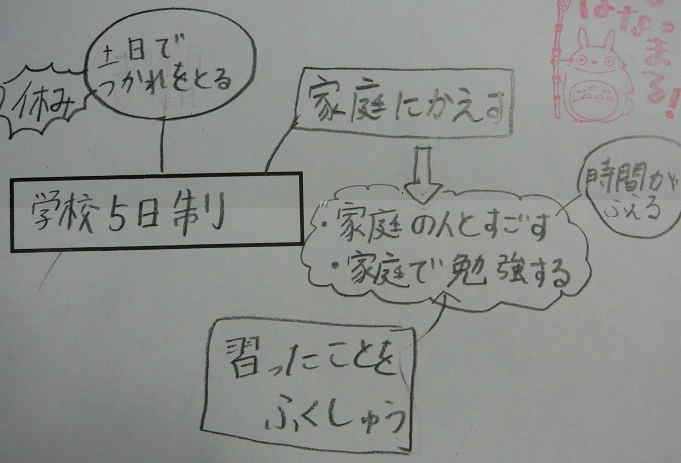 はなっ
まる!
土日で
つかれをとる
休み
家庭にかえす
学校5日制
時間が
ふえる
・家庭の人とすごす
・家庭で勉強する
習ったことを
ふくしゅう